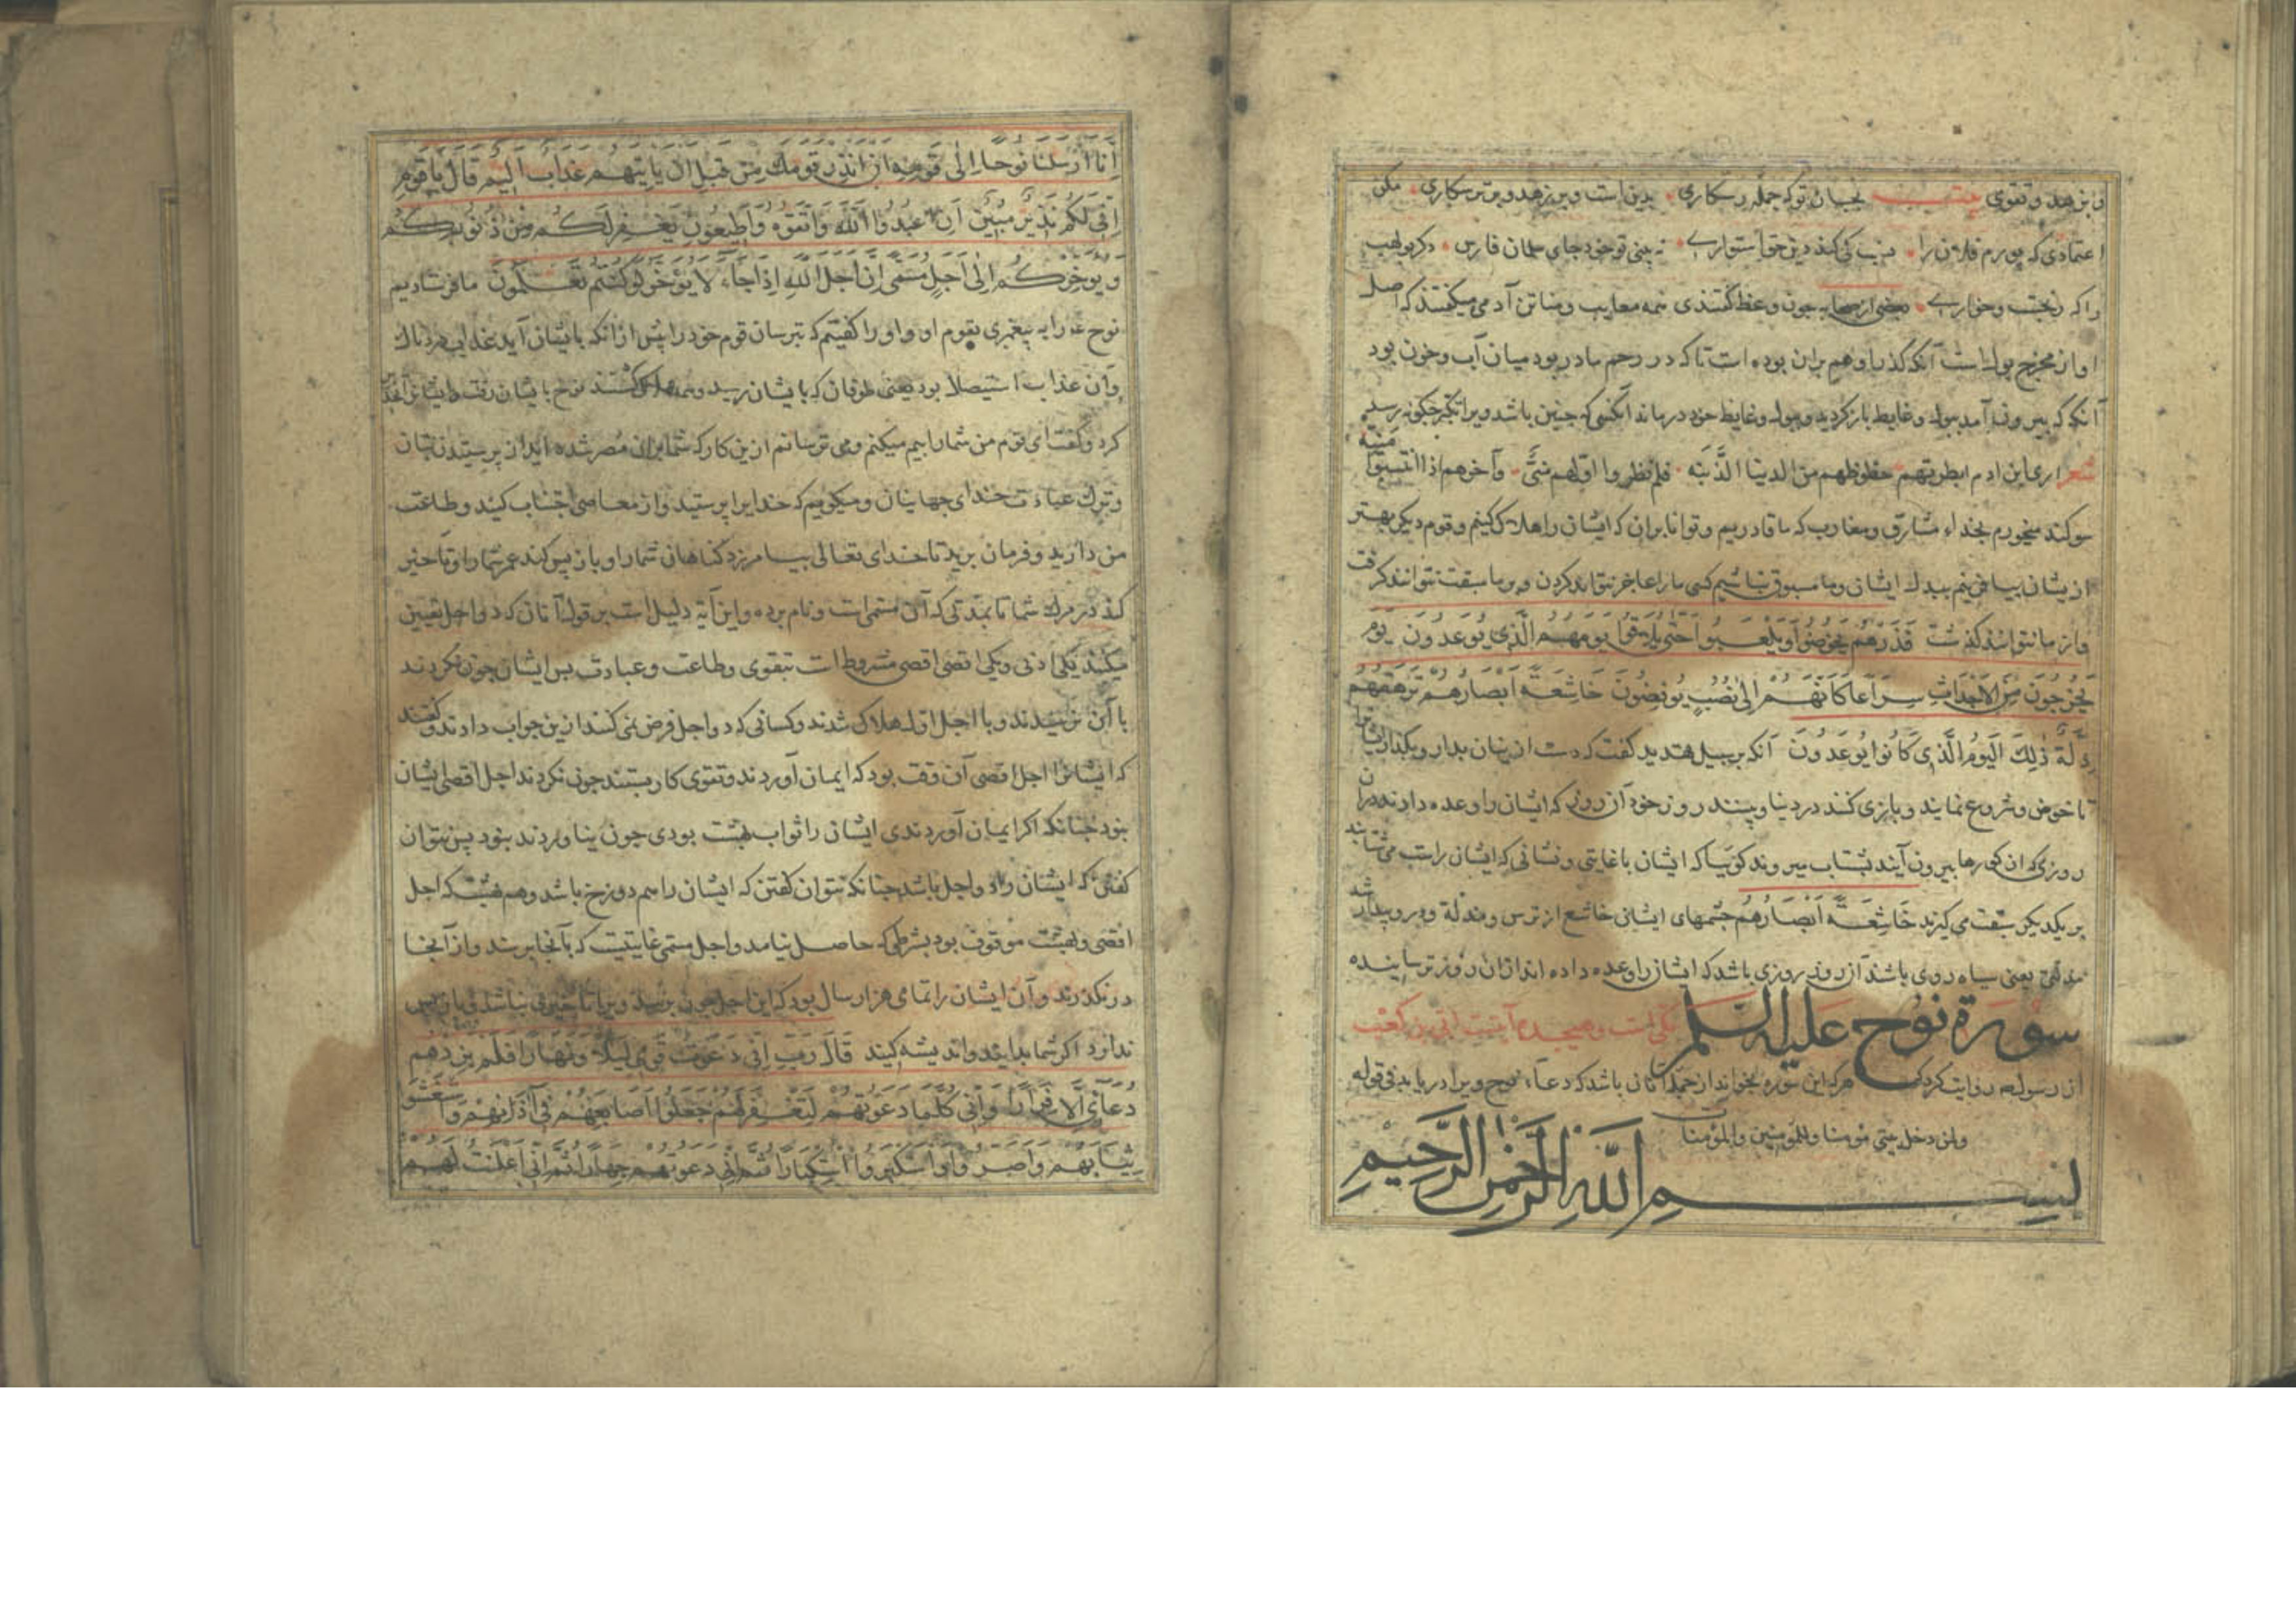 و بزهد و تقوی بیت نجات تو که جمله رستکاری بدین است و بزهد و بترسکاری مکن
اعتمادی که پورم فلان را نسب کی کند دین حق استواری نه بینی تو خود جای سلمان فارس دکر بولهب
را که رنجست و خواری بعضی از صحابه جون وعظ کفتندی همه معایب و تن آدمی میکفتند که اصل
او از مخرج بول است آنکه کذر او هم بران بوده است تا که در رحم مادر بود میان آب و خون بود
آنکه که بیرون آمد ببول و غایط باز کردید و ببول و غایط خود درماند آنکسی که جنین باشد ویرا تکبر جکونه رسد
شعر اری ابن ادم ابطرتهم حظوظهم من الدنیا الدنیه فلم نظروا اولهم منی وآخرهم اذا انتسبوا منیه
سوکند میخورم بخداء مشارق و مغارب که ما قادریم و توانا بران که ایشان را هلاک کنیم و قوم دیکر بهتر
از یشان بیافرینم ببدل ایشان و ما مسبوق نباشیم کسی مارا عاجز نتواند کردن و بر ما سبقت نتوانند کرفت
و از ما نتوانند کذشت فَذَرْهُمْ يَخُوضُوا وَيَلْعَبُوا حَتّٰى يُلَاقُوا يَوْمَهُمُ الَّذِي يُوعَدُونَ يَوْمَ
يَخْرُجُونَ مِنَ الْاَجْدَاثِ سِرَاعًا كَاَنَّهُمْ اِلٰى نُصُبٍ يُوفِضُونَ خَاشِعَةً اَبْصَارُهُمْ تَرْهَقُهُمْ
ذِلَّةٌ ذٰلِكَ الْيَوْمُ الَّذِي كَانُوا يُوعَدُونَ آنکه بر سبیل تهدید کفت که دست ازینان بدار و بکذار ایشانرا
تا خوض و شروع نمایند و بازی کنند در دنیا و ببینند روز خود آن روزی که ایشان را وعده دادند دران
روزی که ان کورها بیرون آیند بشتاب میروند کویا که ایشان با غایتی و نشانی که ایشان راست می شتابند
بر یکدیکر سبقت می کیرند خَاشِعَةً اَبْصَارُهُمْ جشمهای ایشان خاشع از ترس و مذلة و برو پیدا شد
مذلتی یعنی سیاه روی باشند آن روز روزی باشد که ایشان را وعده داده اند ازان روز ترسانیده
سورة نوح علیه السلم مکی است و آیتست ابی بن کعب
از رسولعم روایت کرد که هرکه این سوره بخواند از جمله آنانی باشد که دعاء نوح ویرا دریابد فی قوله
ولمن دخل بیتی مؤمنا وللمؤمنین والمؤمنات
بسم الله الرحمن الرحیم
اِنَّا اَرْسَلْنَا نُوحًا اِلٰى قَوْمِهِ اَنْ اَنْذِرْ قَوْمَكَ مِنْ قَبْلِ اَنْ يَاْتِيَهُمْ عَذَابٌ اَلِيمٌ قَالَ يَا قَوْمِ
اِنِّي لَكُمْ نَذِيرٌ مُبِينٌ اَنِ اعْبُدُوا اللّٰهَ وَاتَّقُوهُ وَاَطِيعُونِ يَغْفِرْ لَكُمْ مِنْ ذُنُوبِكُمْ
وَيُؤَخِّرْكُمْ اِلٰى اَجَلٍ مُسَمًّى اِنَّ اَجَلَ اللّٰهِ اِذَا جَاءَ لَا يُؤَخَّرُ لَوْ كُنْتُمْ تَعْلَمُونَ ما فرستادیم
نوح ع را به پیغمبری بقوم او و او را کفتیم که بترسان قوم خود را پس ازانکه بایشان آید عذابی دردناک
وآن عذاب استیصلا بود یعنی طوفان که بایشان رسید و همه هلاک کشتند نوح بایشان رفت
کرد و کفت ای قوم من شما را بیم میکنم و می ترسانم ازین کار که شما بران مصر شده اید از پرستیدن بتان
و ترک عبادت خدای جهانیان و میکویم که خدایرا پرستید و از معاصی اجتناب کنید و طاعت
من دارید و فرمان برید تا خدای تعالی بیامرزد کناهان شما را و باز پس کند عمر شما را و تأخیر
کند در مرک شما تا بمدتی که آن مسمی است و نام برده و این آیة دلیل است بر قول آنان که دو اجل تعیین
میکنند یکی ادنی و یکی اقصی اقصی مشروط است بتقوی و طاعت و عبادت بس ایشان جون نکردند
باآن نرسیدند و با اجل اول هلاک شدند و کسانی که دو اجل فرض نمی کنند ازین جواب دادند و کفتند
که ایشانرا اجل اقصی آن وقت بود که ایمان آوردند و تقوی کار بستند جون نکردند اجل اقصی ایشان
نبود جنانکه اکر ایمان آوردندی ایشان را ثواب بهشت بودی جون نیاوردند نبود پس نتوان
کفتن که ایشان را دو اجل باشد جنانکه نتوان کفتن که ایشان را هم دوزخ باشد و هم بهشت که اجل
اقصی و بهشت موقوف بود بشرطی که حاصل نیامد و اجل مسمی غایتیست که بآنجا برسند و از آنجا
در نکذرند و آن ایشان را تمامی هزار سال بود که این اجل جون برسد ویرا تاخیری نباشد و باز پس
ندارد اکر شما بدانید و اندیشه کنید قَالَ رَبِّ اِنِّي دَعَوْتُ قَوْمِي لَيْلًا وَنَهَارًا فَلَمْ يَزِدْهُمْ
دُعَائِي اِلَّا فِرَارًا وَاِنِّي كُلَّمَا دَعَوْتُهُمْ لِتَغْفِرَ لَهُمْ جَعَلُوا اَصَابِعَهُمْ فِي آذَانِهِمْ وَاسْتَغْشَوْا
ثِيَابَهُمْ وَاَصَرُّوا وَاسْتَكْبَرُوا اسْتِكْبَارًا ثُمَّ اِنِّي دَعَوْتُهُمْ جِهَارًا ثُمَّ اِنِّي اَعْلَنْتُ لَهُمْ